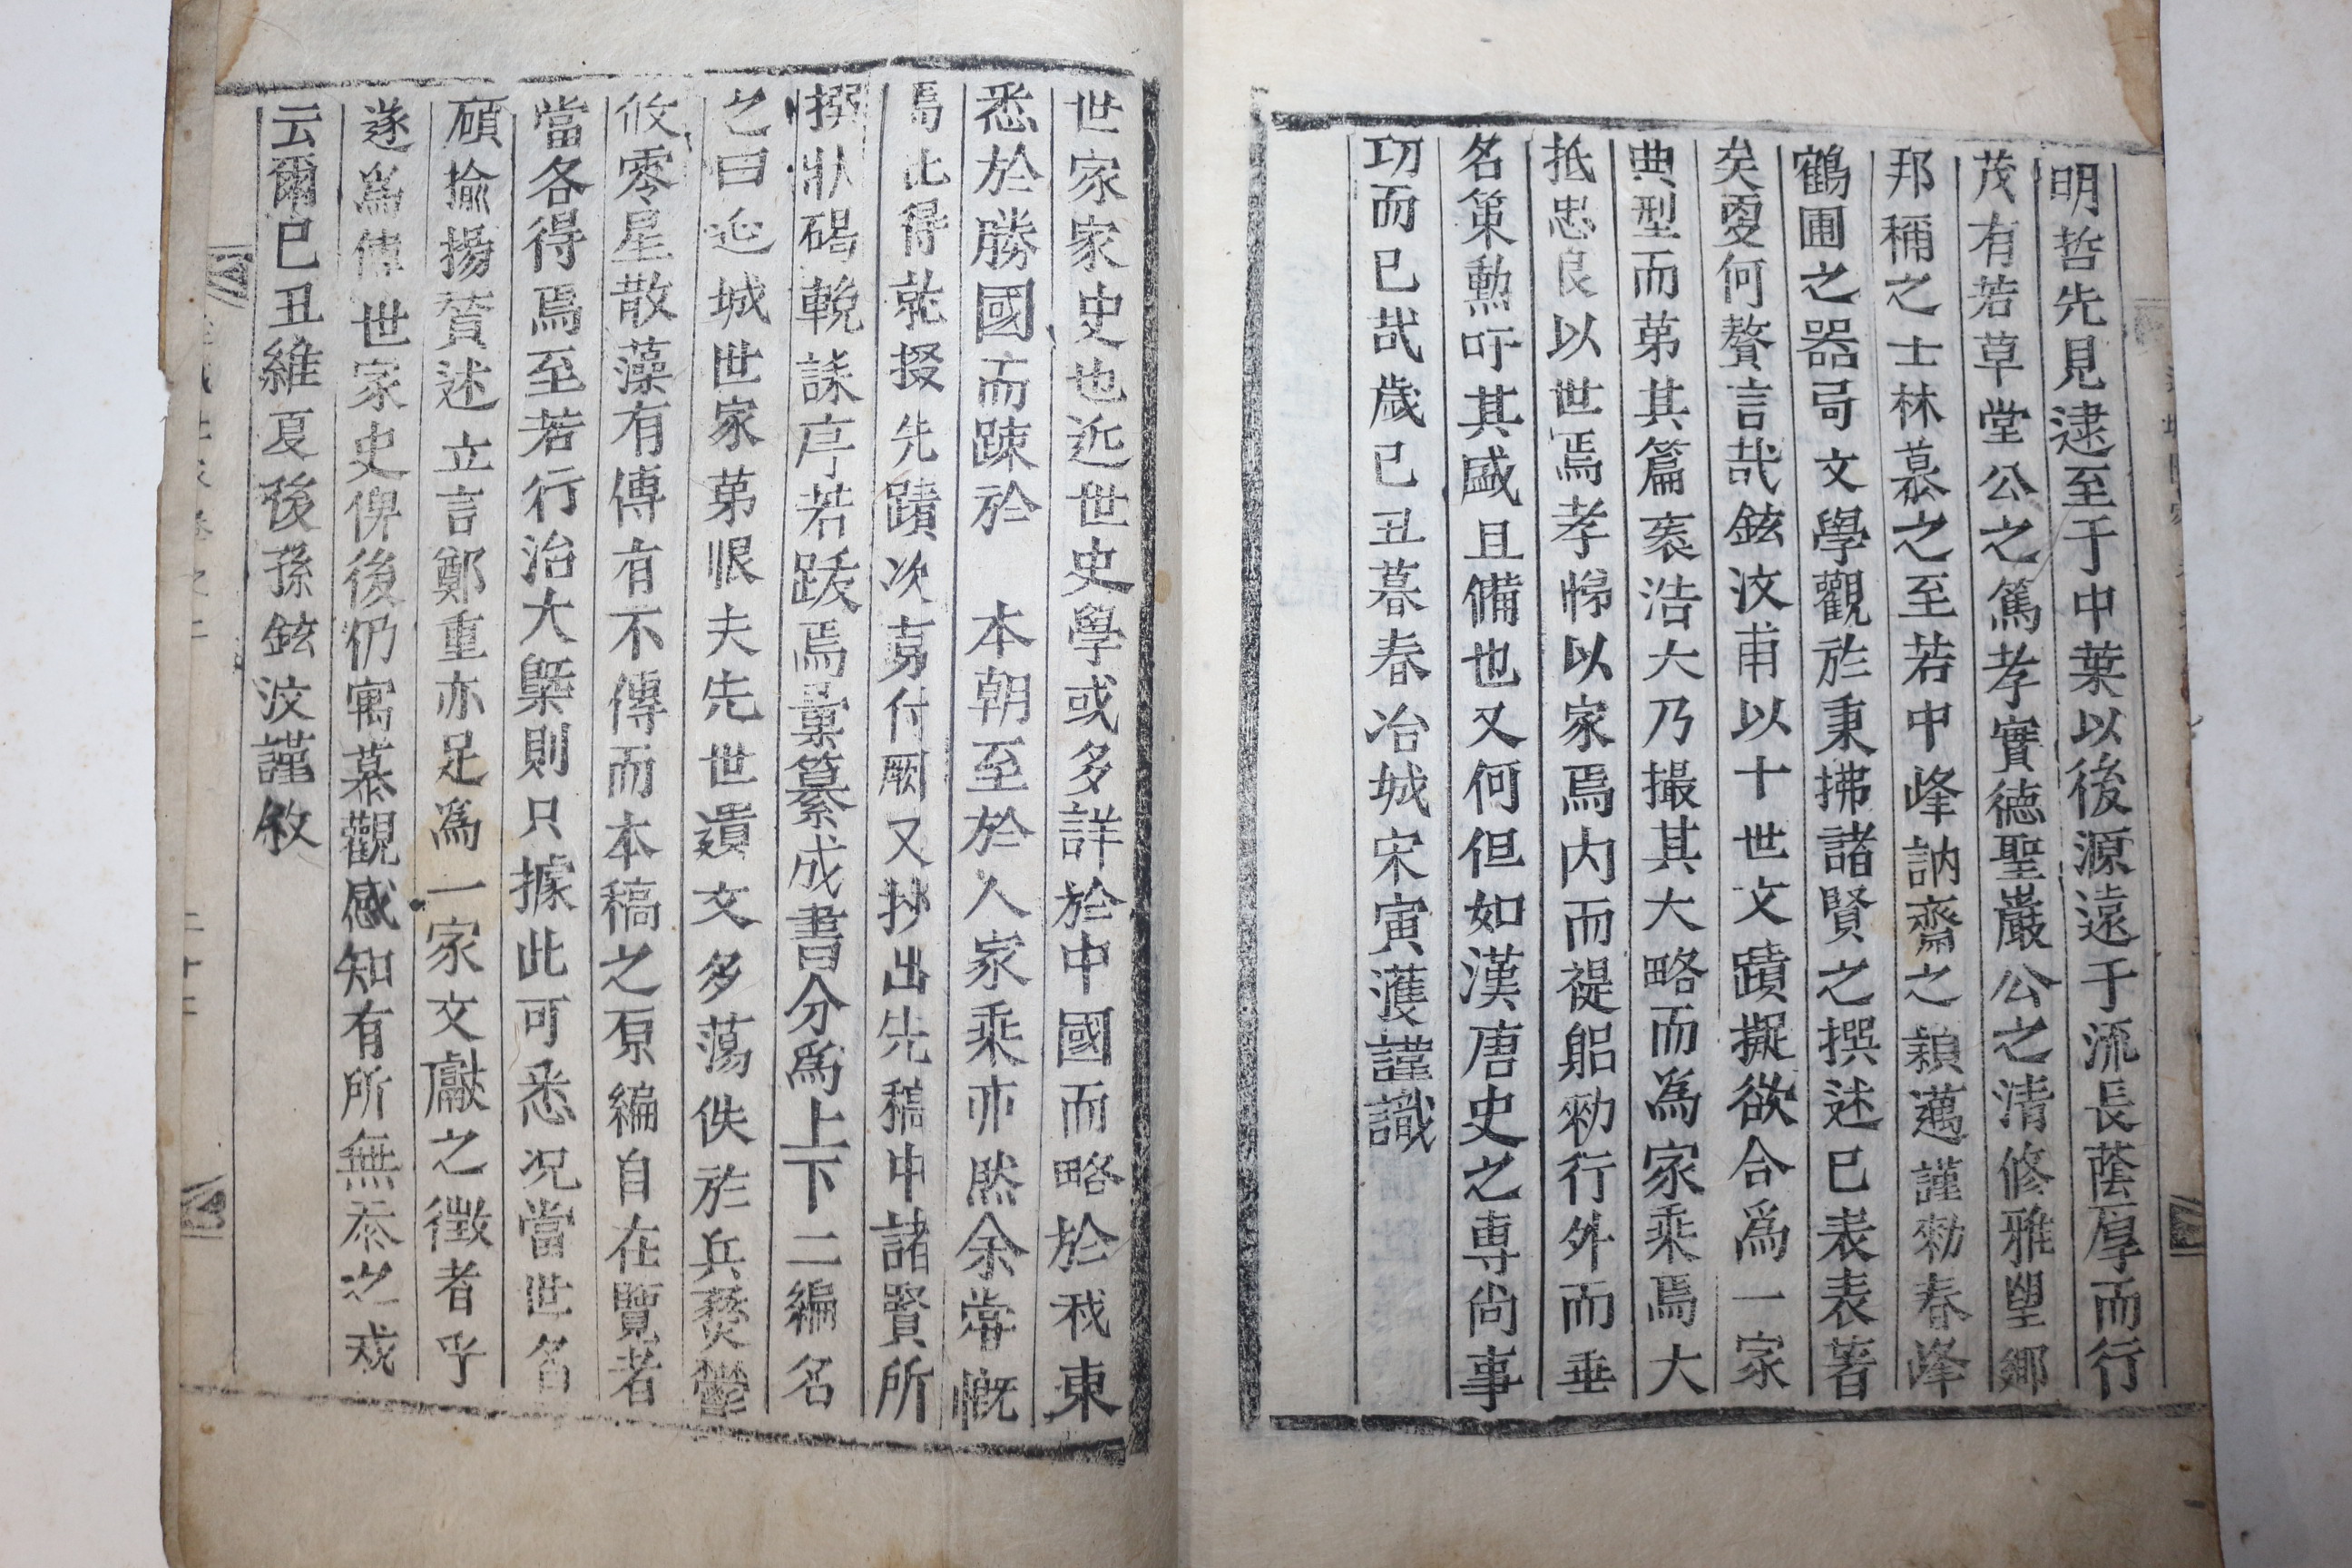 明哲先見逮至于中葉以後源遠于流長蔭厚而行
茂有若草堂公之篤孝實德聖巖公之清修雅望鄉
邦稱之士林慕之至若中峰訥齋之穎邁謹勑春峰
鶴圃之器局文學觀於秉拂諸賢之撰述已表表著
矣更何贅言哉鉉汶甫以十世文蹟擬欲合爲一家
典型而苐其篇袠浩大乃撮其大略而為家乘焉大
抵忠良以世焉孝悌以家焉内而禔躬勑行外而垂
名策勳吁其盛且備也又何但如漢唐史之專尙事
功而已哉歲己丑暮春冶城宋寅濩謹識
世家家史也近世史學或多詳於中國而略於我東
悉於勝國而踈於 本朝至於人家乘亦然余常慨
焉比得就掇先蹟次剪付厥又抄出先稿中諸賢所
撰狀碣輓誄序若跋焉彙纂成書分爲上下二編名
之曰延城世家苐恨夫先世遺文多蕩佚於兵燹鬱
攸零星散藻有傳有不傳而本稿之原編自在覽者
當各得焉至若行治大槩則只據此可悉况當世名
碩揄揚贊述立言鄭重亦足爲一家文獻之徵者乎
遂爲傳世家史俾後仍寓慕觀感知有所無忝之戒
云爾已丑維夏後孫鉉汶謹敘